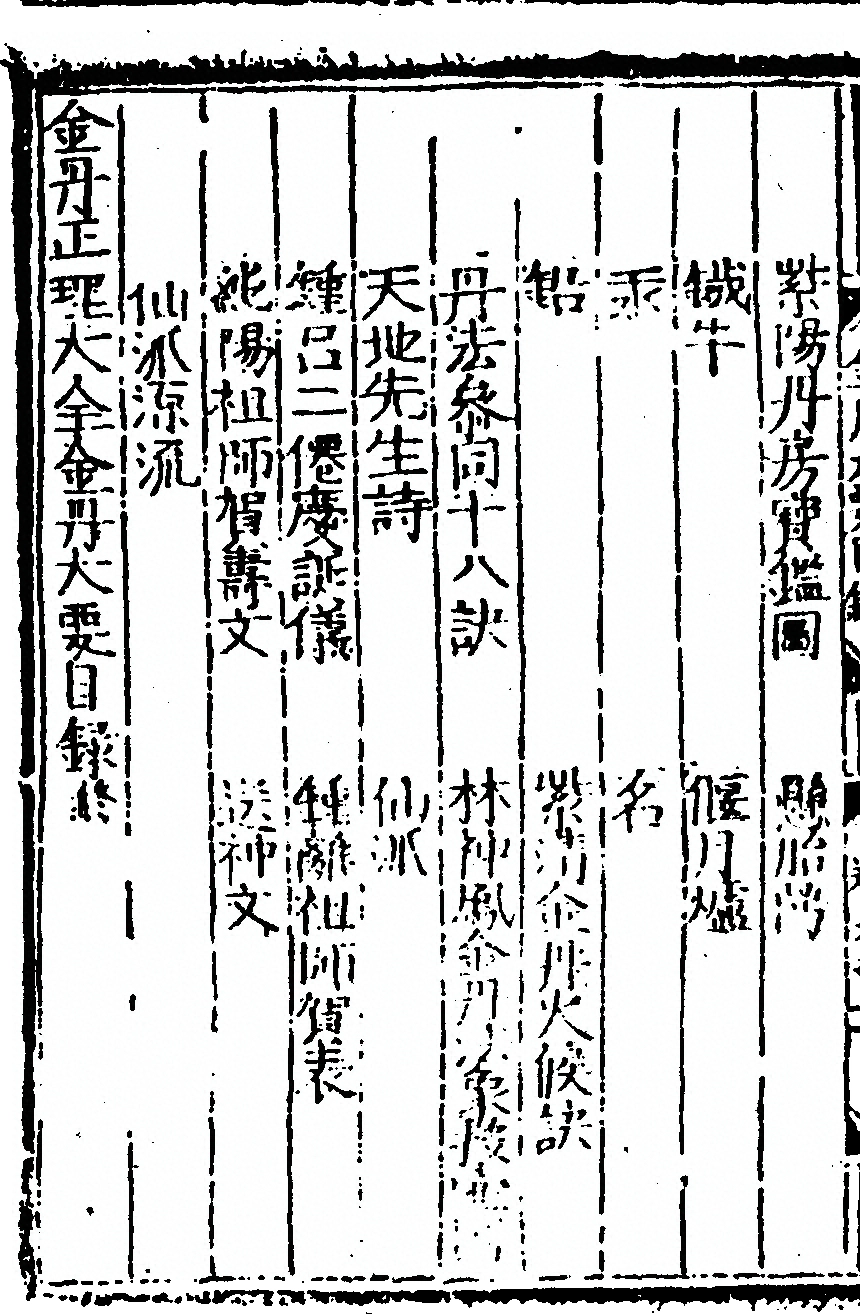 紫陽丹房寶鑑圖　懸胎鼎
鐵牛　偃月爐
汞　名
鉛　紫清金丹火候訣
丹法參同十八訣　林神鳳金丹
天地先生詩　仙派
鍾呂二僊慶誕儀　鍾離祖師賀表
純陽祖師賀壽文　送神文
仙派源流
金丹正理大全金丹大要目錄終